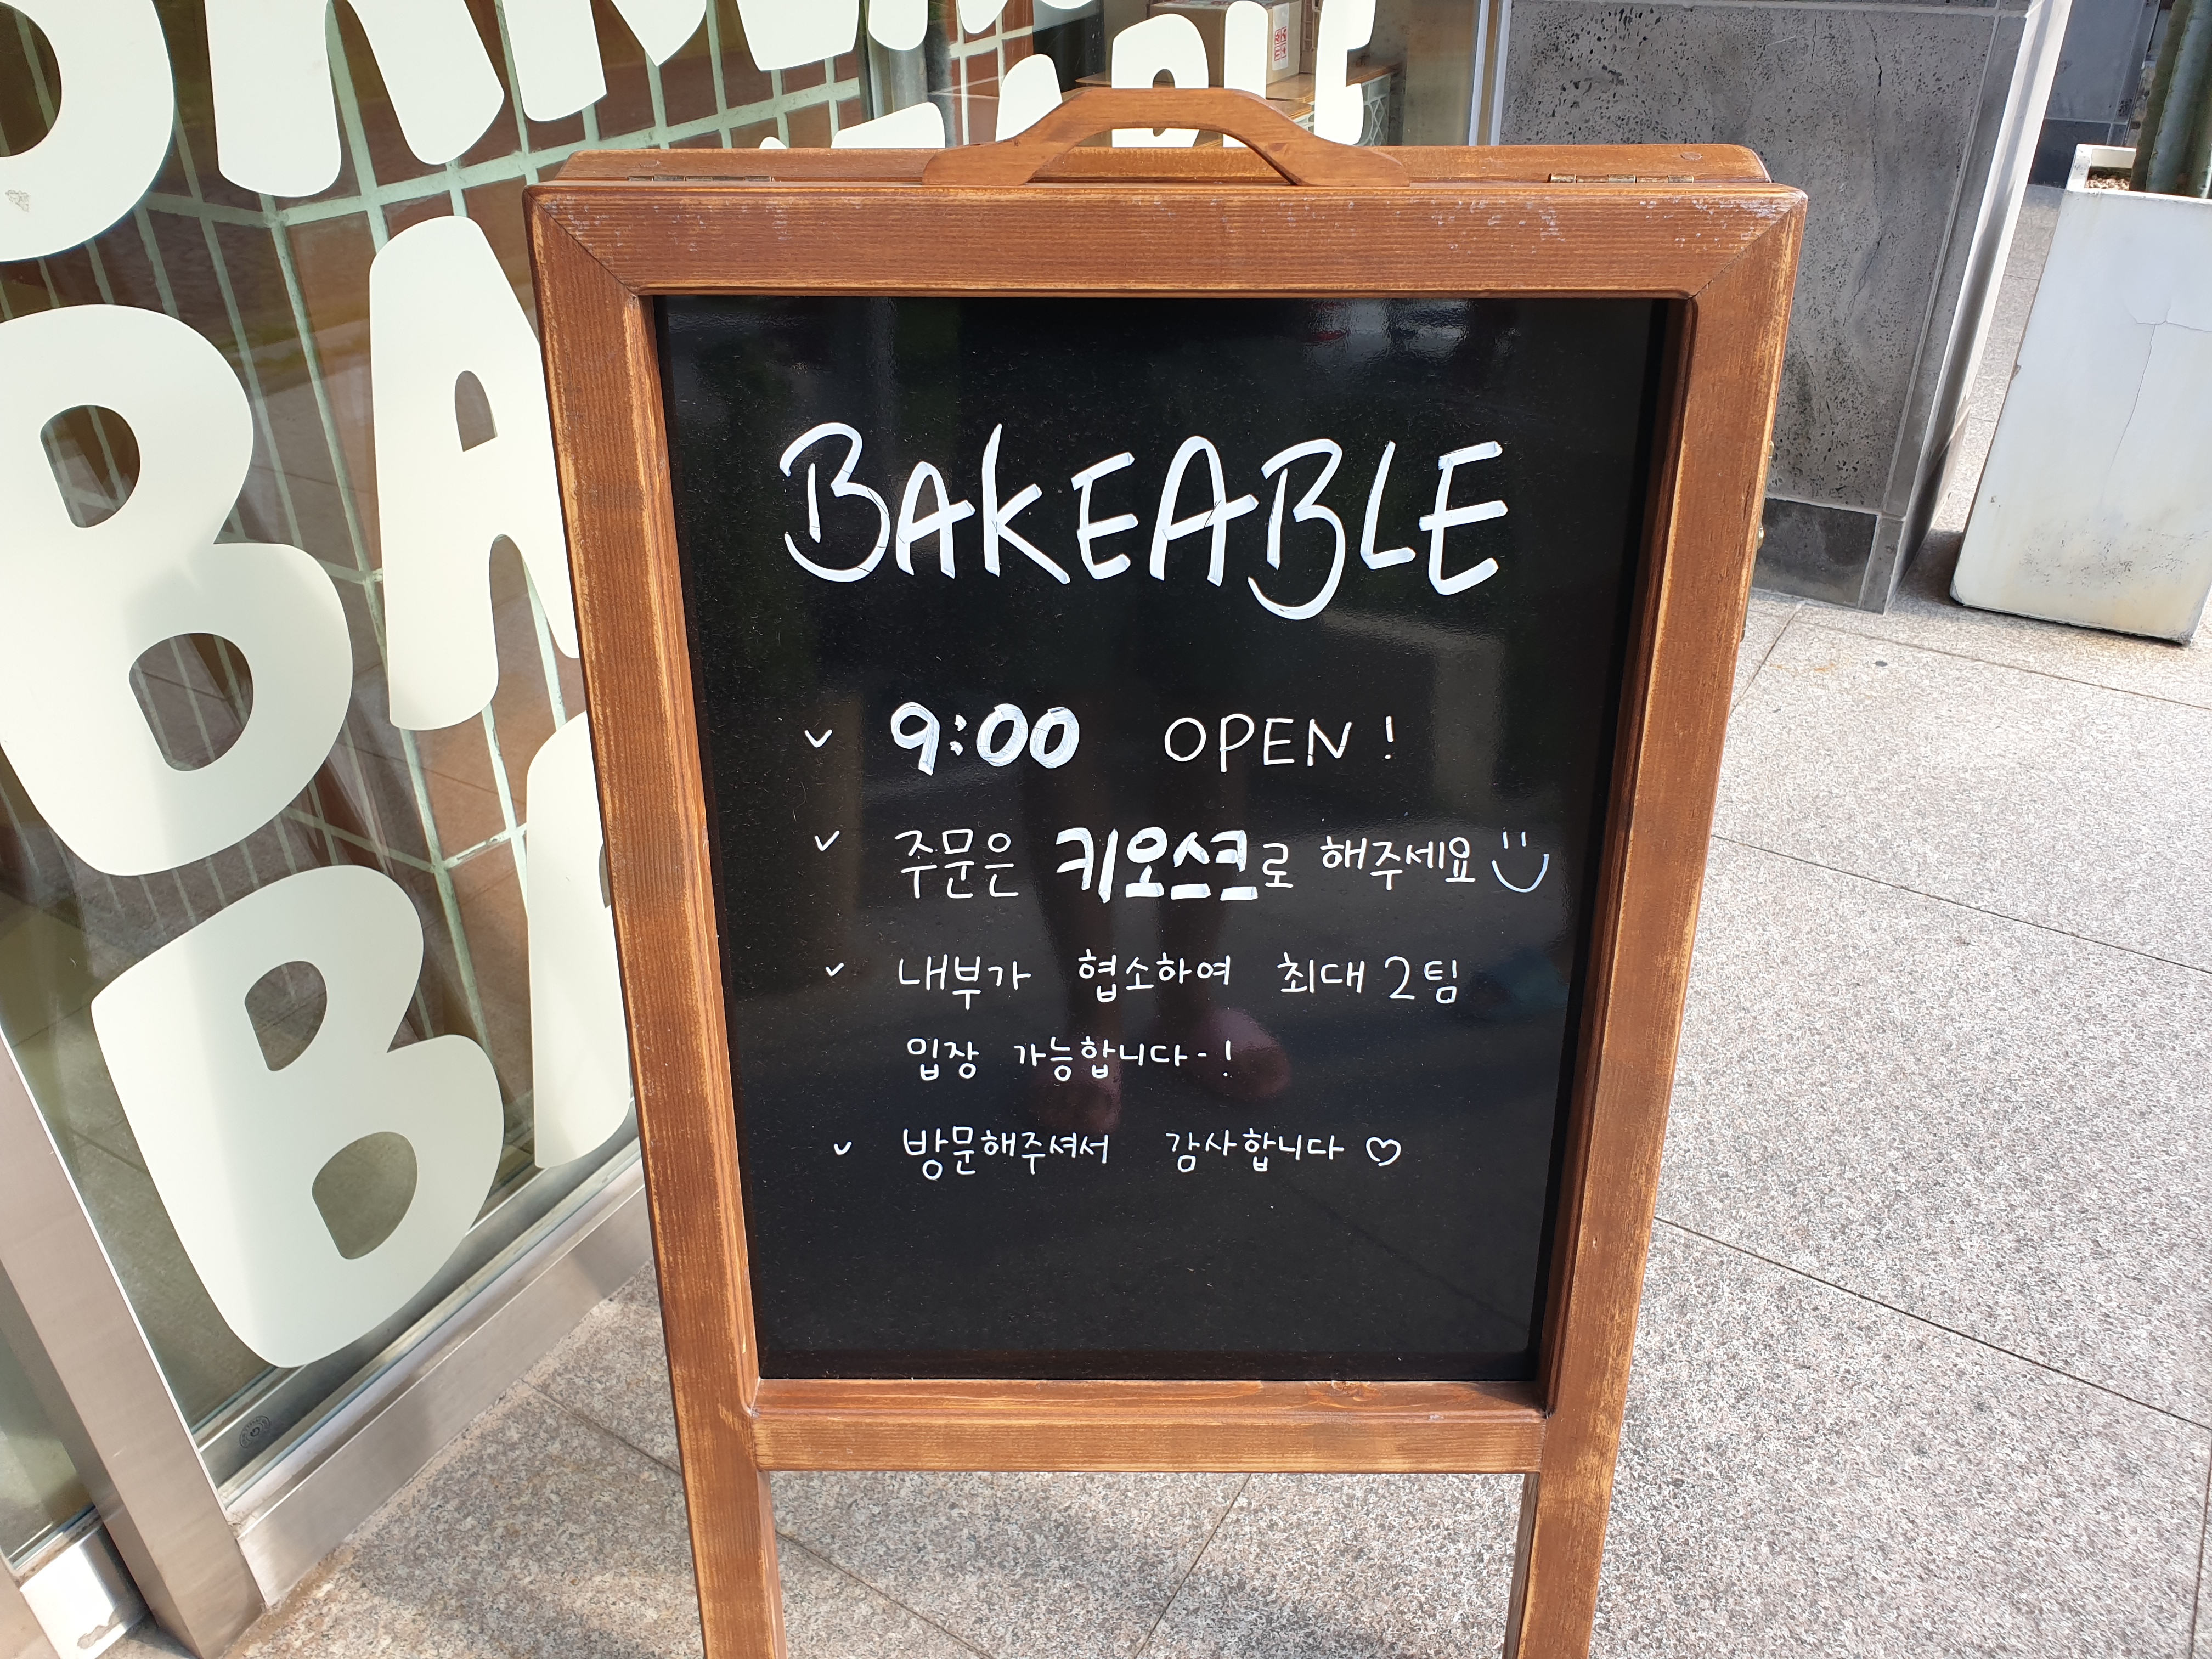 BAKEABLE
BA
BA
BAKEABLE
✓ 9:00 OPEN !
✓ 주문은 키오스크로 해주세요
✓ 내부가 협소하여 최대 2팀
입장 가능합니다-!
✓ 방문해주셔서 감사합니다 ♡